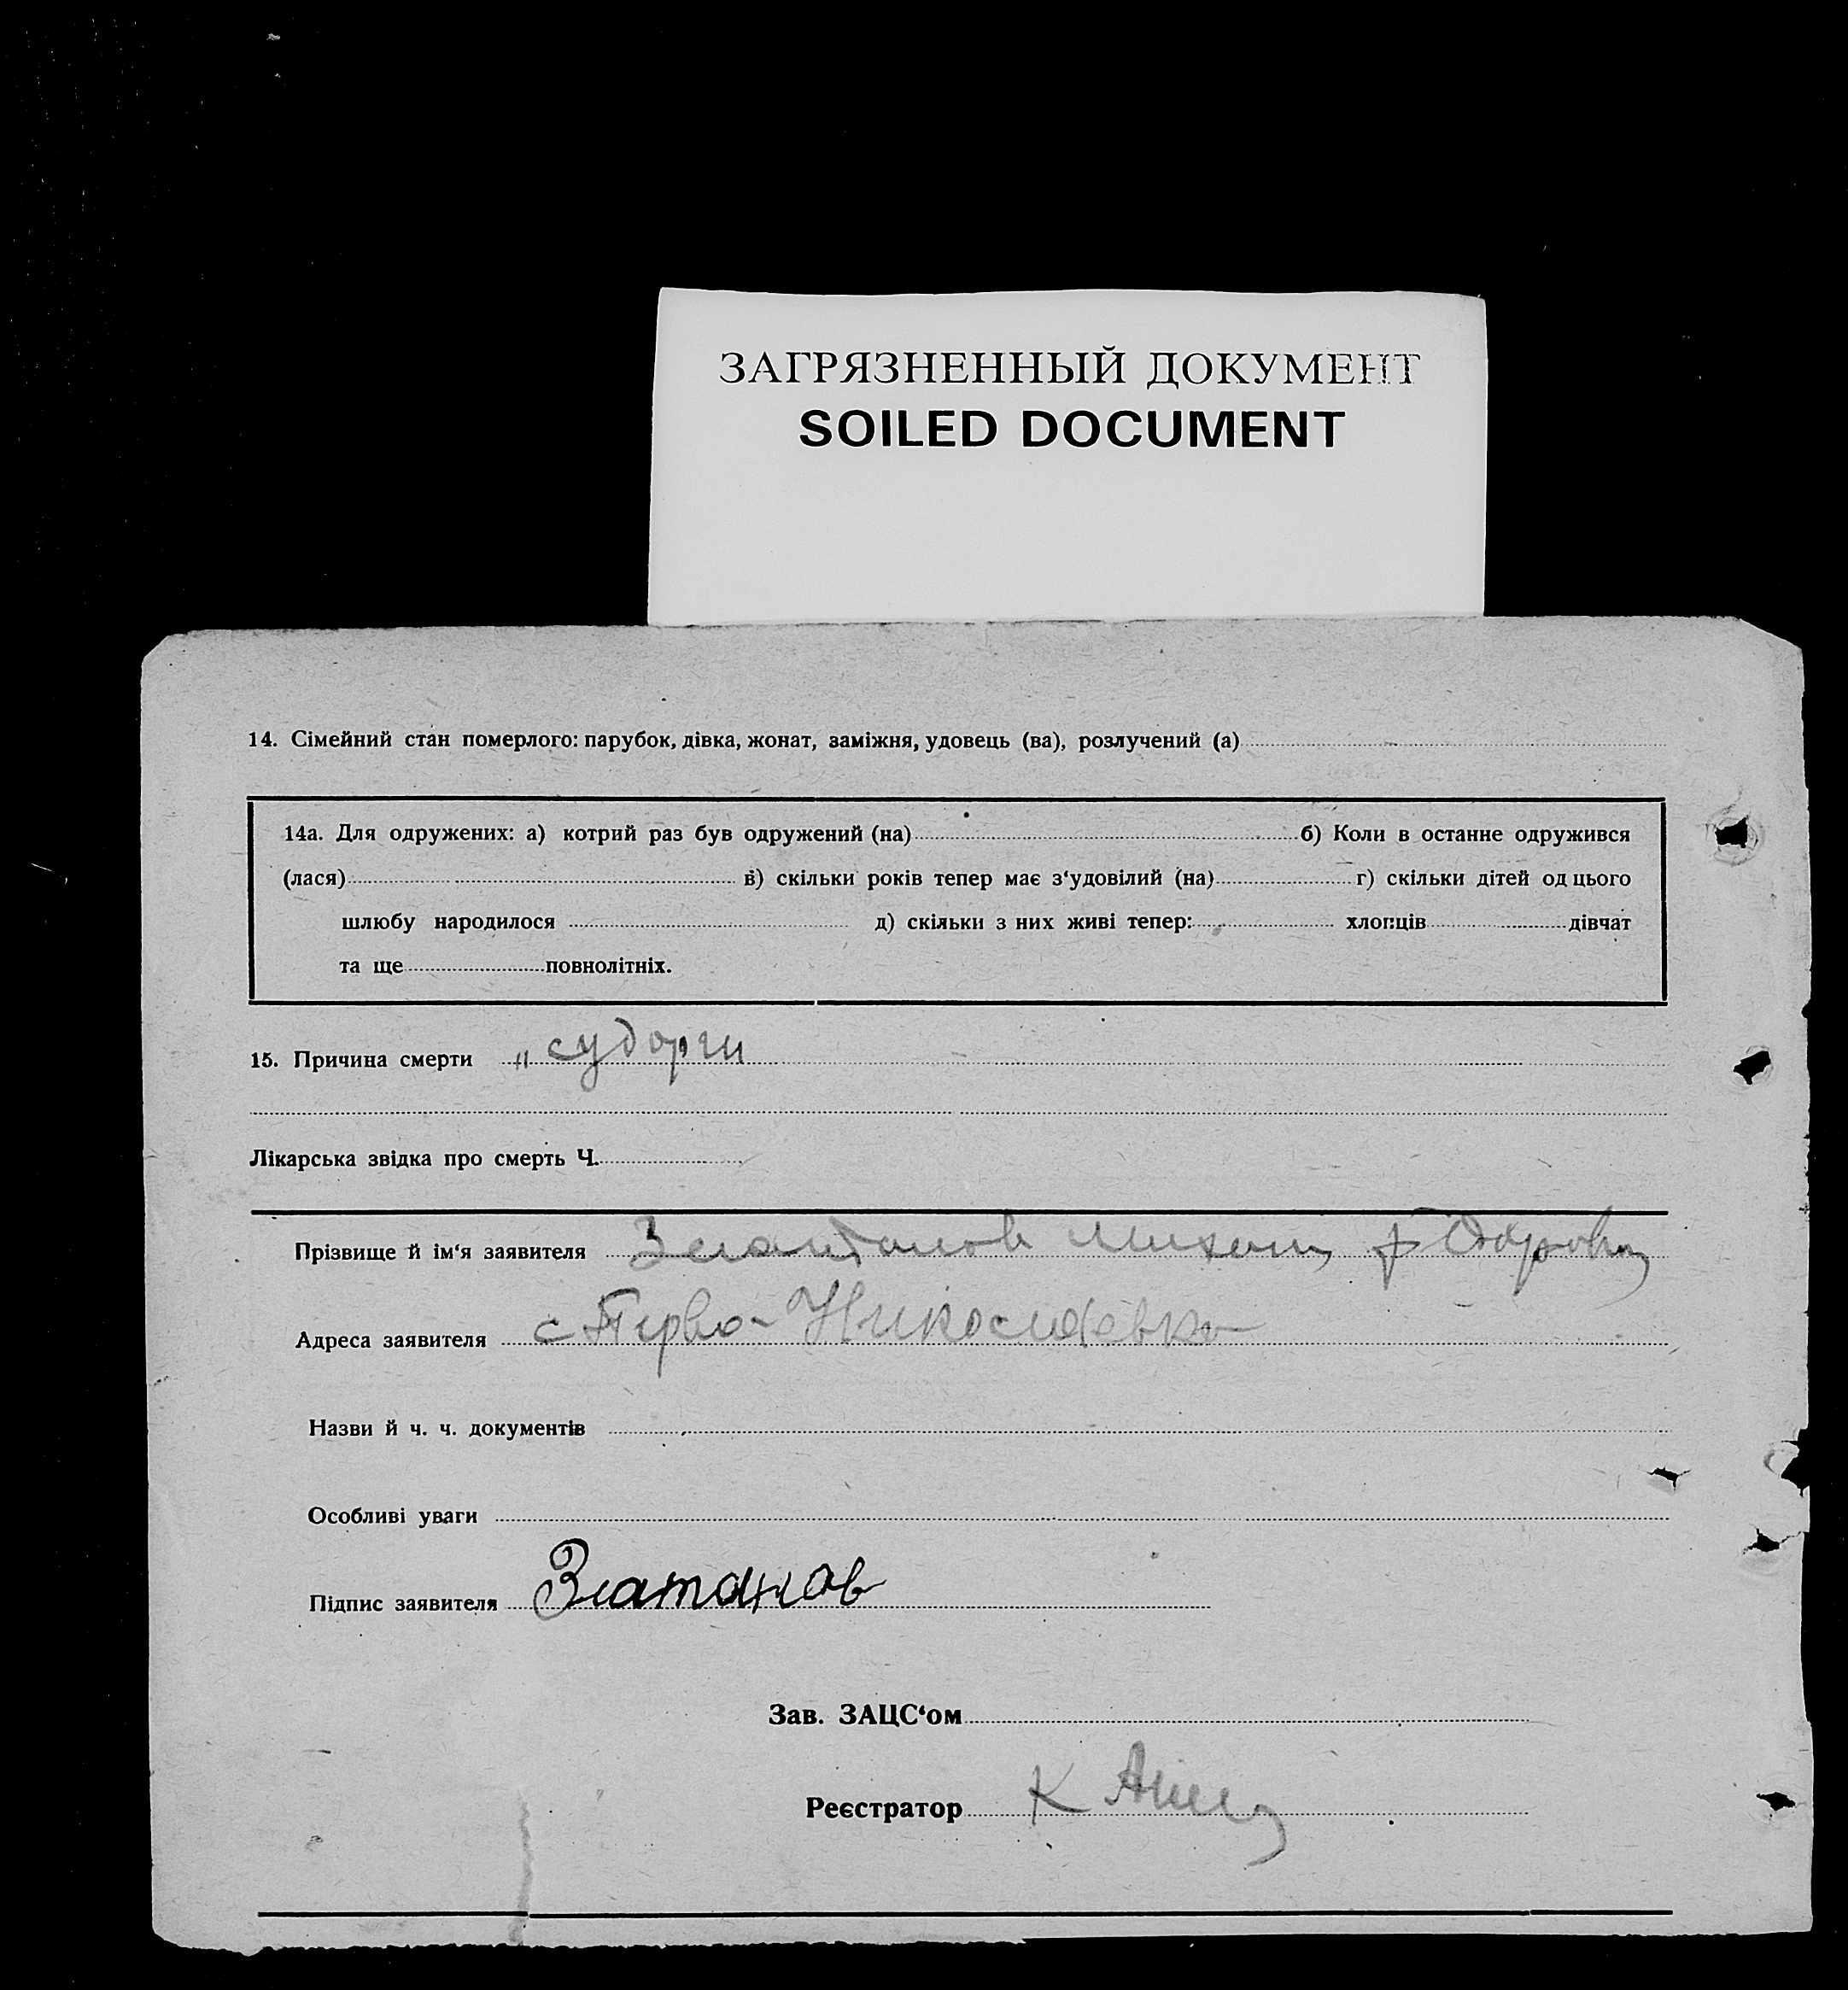 ЗАГРЯЗНЕННЫЙ ДОКУМЕНТ
SOILED DOCUMENT
14. Сімейний стан померлого: парубок, дівка, жонат, заміжня, удовець (ва), розлучений (а)
14а. Для одружених: а) котрий раз був одружений (на) б) Коли в останне одружився
(лася) в) скільки років тепер має з‘удовілий (на) г) скільки дітей од цього
шлюбу народилося д) скільки з них живі тепер: хлопців дівчат
та ще повнолітніх.
15. Причина смерти „ судорги
Лікарська звідка про смерть Ч.
Прізвище й ім‘я заявителя Златанов Михаил
Адреса заявителя с Перво-Николаевка
Назви й ч. ч. документів
Особливі уваги
Підпис заявителя Златанов
Зав. ЗАЦС‘ом
Реєстратор К